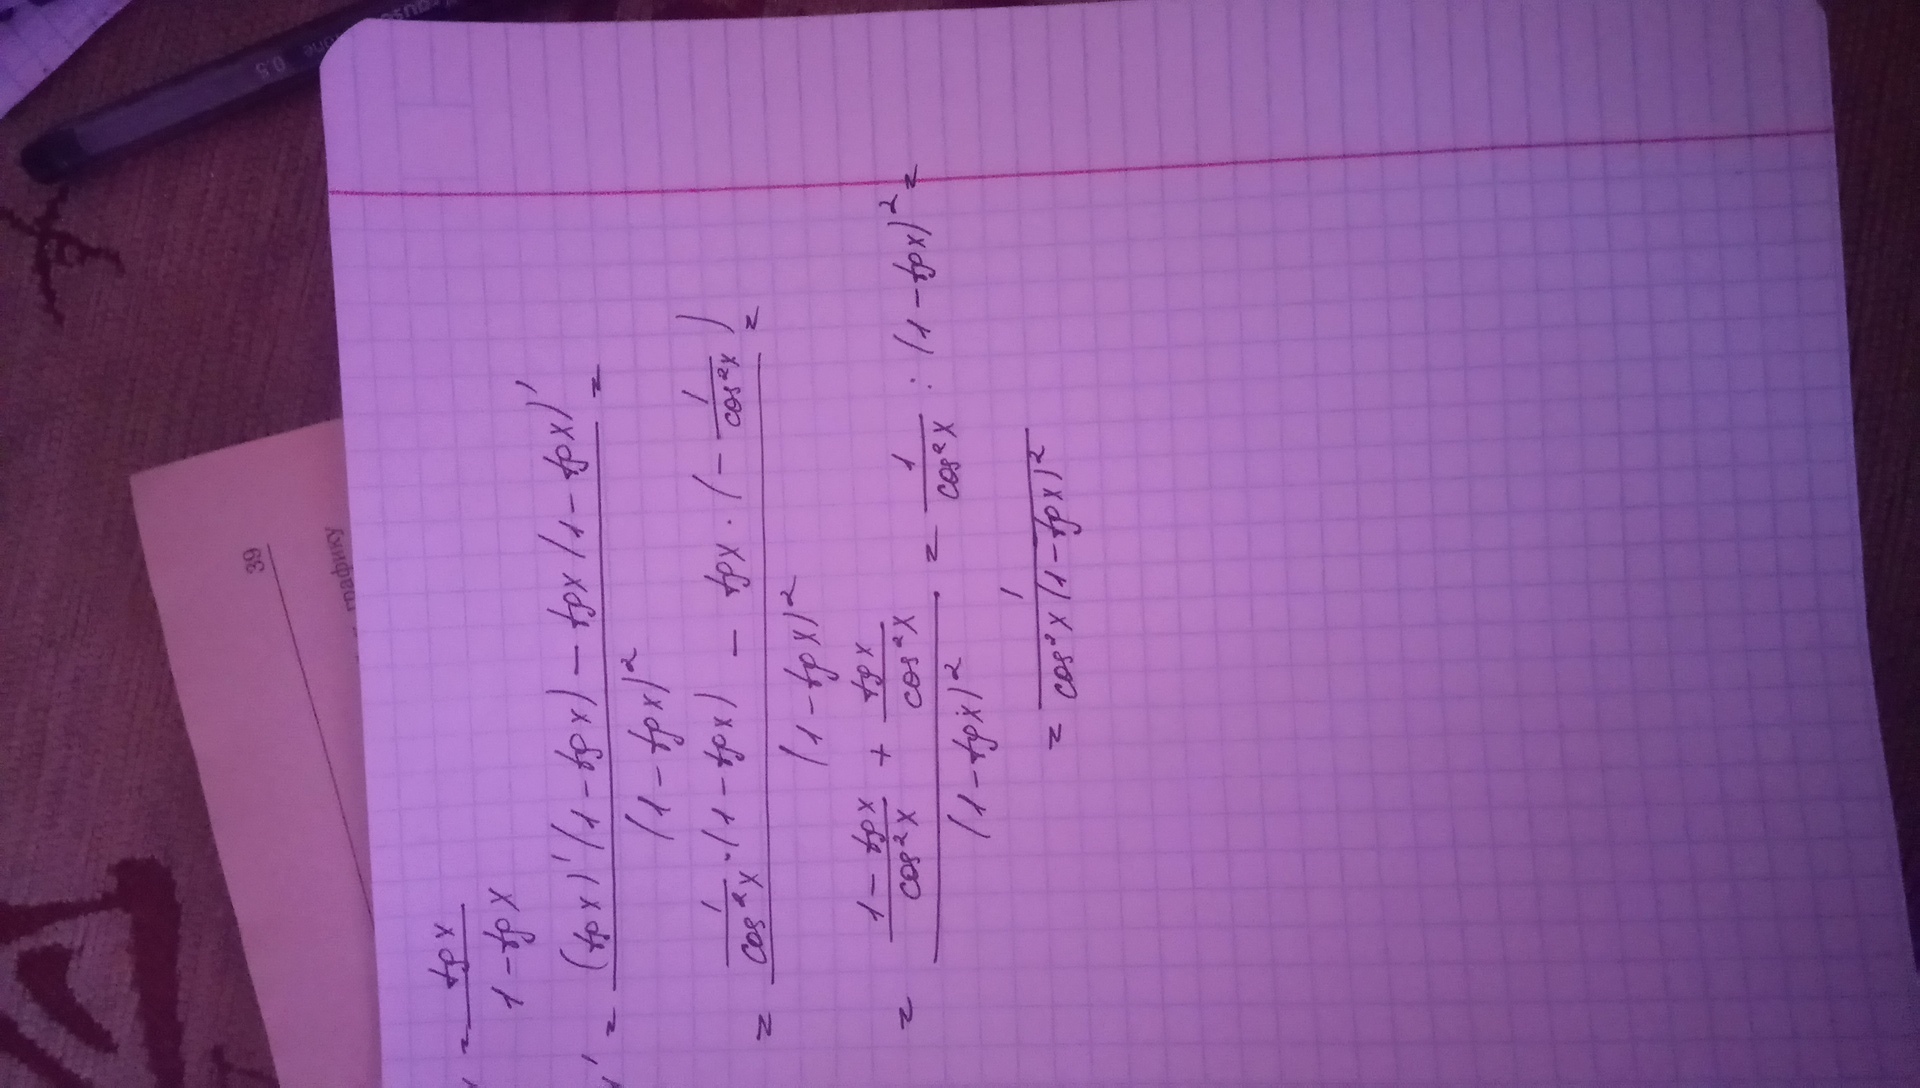 = tgx / (1 - tgx)
y' = ((tgx)'(1 - tgx) - tgx(1 - tgx)') / (1 - tgx)² =
= (1/cos²x · (1 - tgx) - tgx · (- 1/cos²x)) / (1 - tgx)² =
= ((1 - tgx)/cos²x + tgx/cos²x) / (1 - tgx)² = 1/cos²x : (1 - tgx)² =
= 1 / (cos²x(1 - tgx)²)
39
графику
0.5